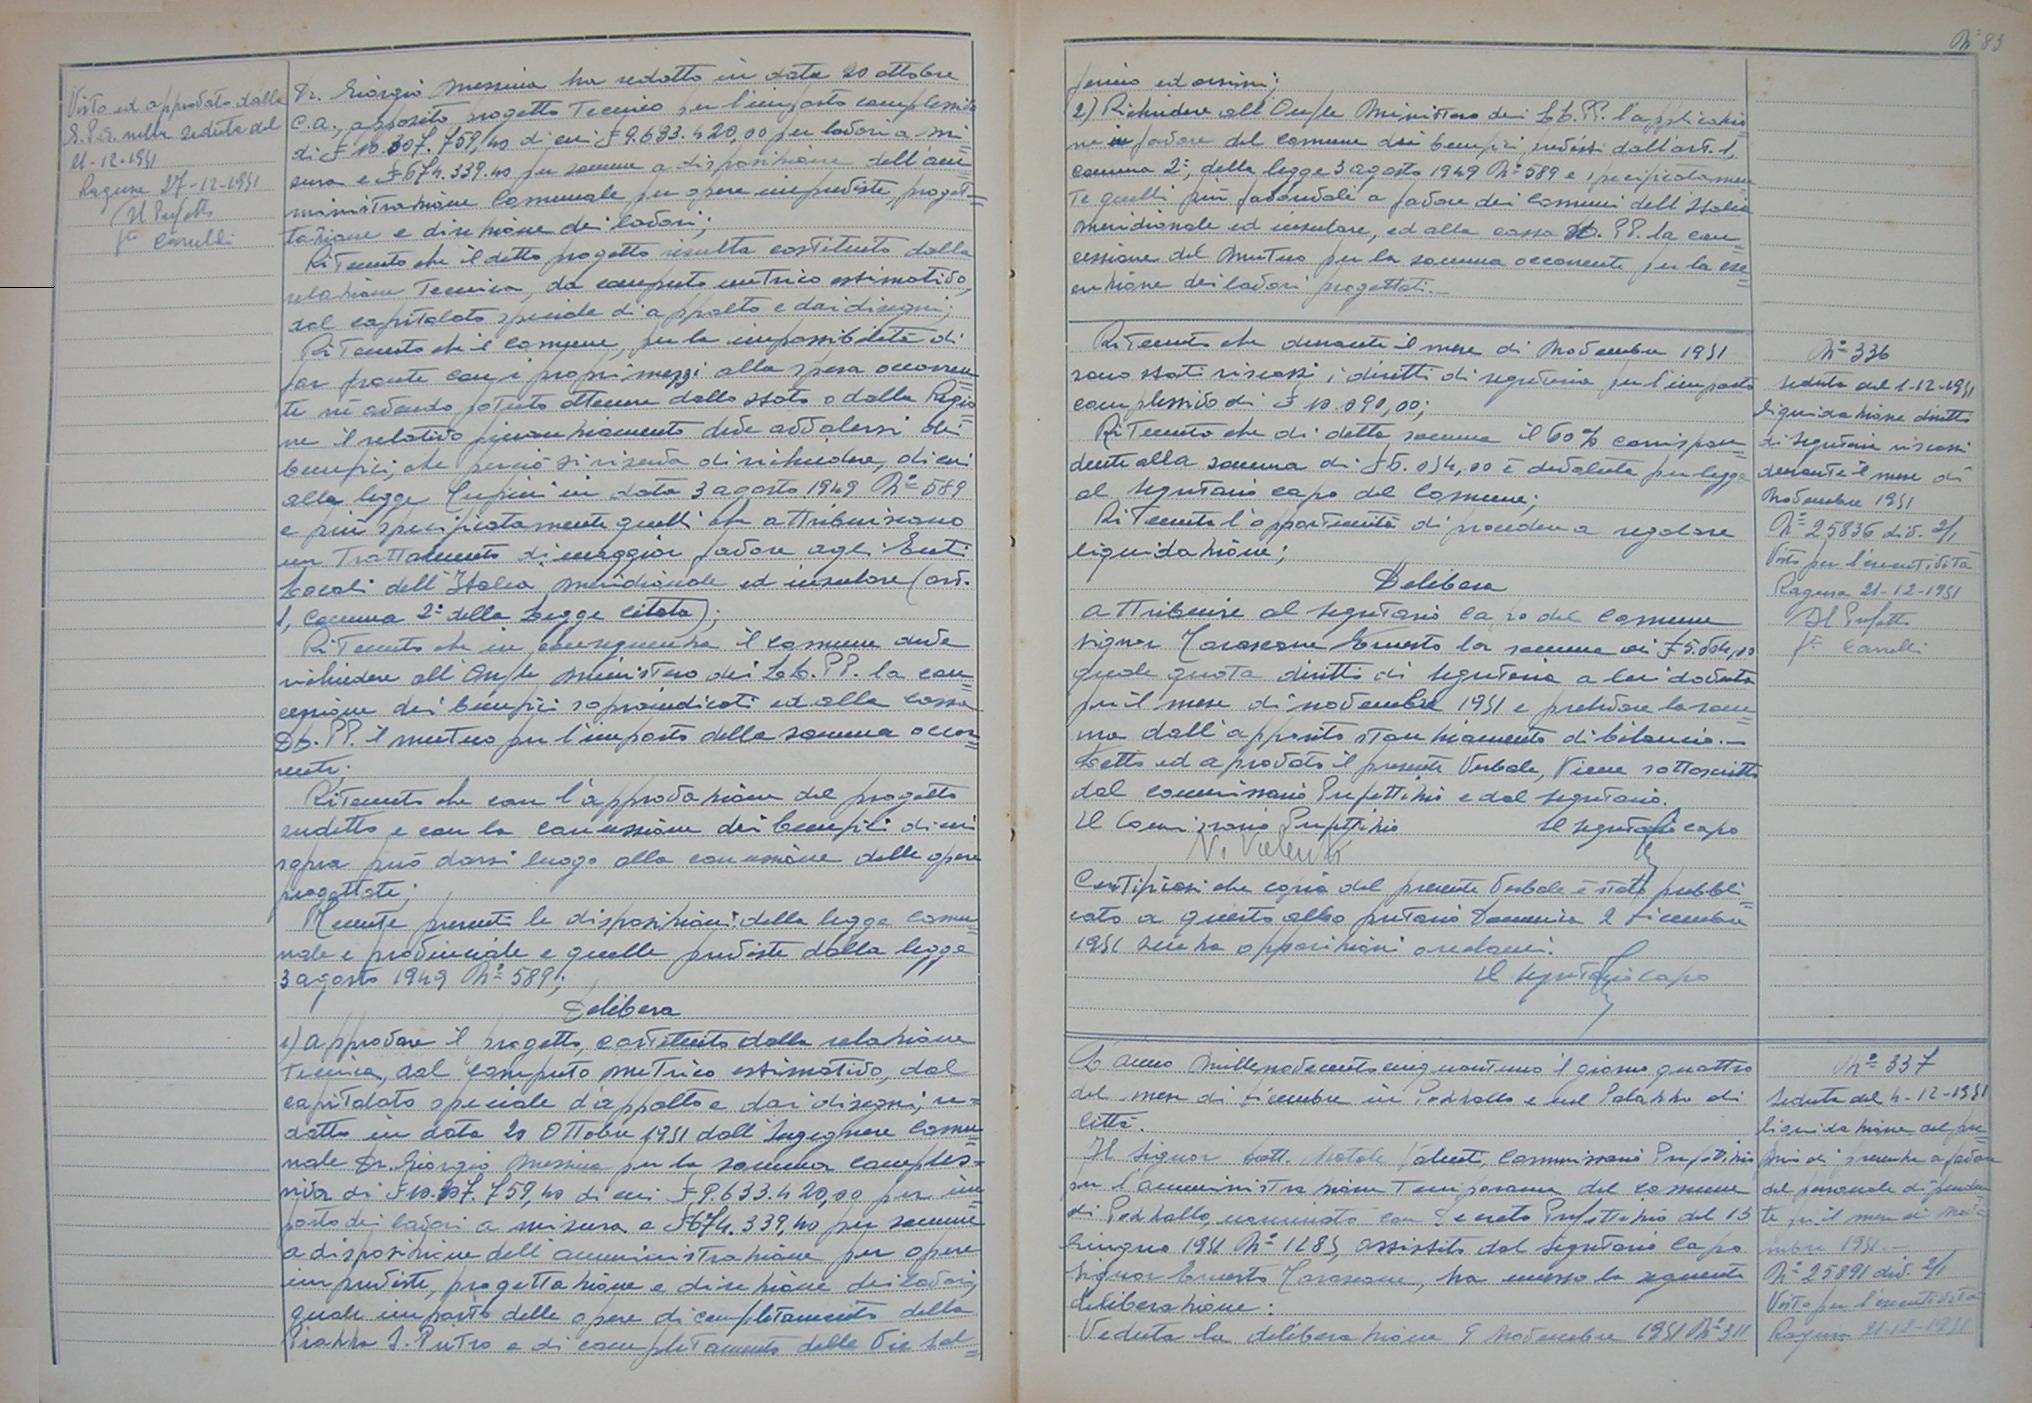 Visto ed approvato dalla
G.P.A. nella seduta del
21-12-1951
Ragusa 27-12-1951
Il Prefetto
fto
Dr. Giorgio Messina ha redatto in data 20 ottobre
c.a., apposito progetto tecnico per l'importo complessivo
di £ 10.307.759,40 di cui £ 9.633.420,00 per lavori a mi=
sura e £ 674.339.40 per somme a disposizione dell'am=
ministrazione Comunale per opere impreviste, proget=
tazione e direzione dei lavori;
Ritenuto che il detto progetto risulta costituito dalla
relazione tecnica, da computo metrico estimativo,
dal capitolato speciale di appalto e dai disegni;
Ritenuto che il Comune, per la impossibilità di
far fronte con i propri mezzi alla spesa occorren=
te nè avendo potuto ottenere dallo Stato o dalla Regio=
ne il relativo finanziamento deve avvalersi dei
benefici, che perciò si riserva di richiedere, di cui
alla legge Tupini in data 3 agosto 1949 N° 589
e più specificatamente quelli che attribuiscono
un trattamento di maggior favore agli Enti
Locali dell'Italia meridionale ed insulare (art.
1, comma 2° della Legge citata);
Ritenuto che in conseguenza il Comune deve
richiedere all'On/le Ministero dei LL.PP. la con=
cessione dei benefici sopraindicati ed alla Cassa
DD.PP. il mutuo per l'importo della somma occor=
rente;
Ritenuto che con l'approvazione del progetto
suddetto e con la concessione dei benefici di cui
sopra può darsi luogo alla concessione delle opere
progettate;
Tenute presenti le disposizioni della legge comu=
nale e provinciale e quelle previste dalla legge
3 agosto 1949 N° 589;
Delibera
1) approvare il progetto, costituito dalla relazione
tecnica, dal computo metrico estimativo, dal
capitolato speciale d'appalto e dai disegni, re=
datto in data 20 Ottobre 1951 dall'Ingegnere Comu=
nale Dr. Giorgio Messina per la somma comples=
siva di £ 10.307.759,40 di cui £ 9.633.420,00 per im=
porto dei lavori a misura e £ 674.339,40 per somme
a disposizione dell'amministrazione per opere
impreviste, progettazione e direzione dei lavori,
quale importo delle opere di completamento della
Piazza S. Pietro e di completamento delle Vie Sal=
N° 83
2) Richiedere all'On/le Ministero dei LL.PP. l'applicazio=
ne in favore del Comune dei benefici previsti dall'art. 1,
comma 2°, della legge 3 agosto 1949 N° 589 e specificatamen=
te quelli più favorevoli a favore dei Comuni dell'Italia
meridionale ed insulare, ed alla Cassa DD. PP. la con=
cessione del mutuo per la somma occorrente per la ese=
cuzione dei lavori progettati.—
Ritenuto che durante il mese di Novembre 1951
sono stati riscossi i diritti di segreteria per l'importo
complessivo di £ 10.090,00;
Ritenuto che di detta somma il 50% corrispon=
dente alla somma di £ 5.054,00 è devoluta per legge
al segretario capo del Comune;
Ritenuta l'opportunità di procedere a regolare
liquidazione;
Delibera
Attribuire al segretario capo del Comune
signor Tarascone Ernesto la somma di £ 5.054,00
quale quota diritti di segreteria a lui dovuta
per il mese di novembre 1951 e prelevare la som=
ma dall'apposito stanziamento di bilancio.—
Letto ed approvato il presente verbale, viene sottoscritto
dal commissario Prefettizio e dal segretario.
Il Commissario Prefettizio Il segretario capo
N. Valenti
Certificasi che copia del presente verbale è stata pubbli=
cata a questo albo pretorio Domenica 2 Dicembre
1951 senza opposizioni o reclami.
Il segretario capo
N° 336
Seduta del 1-12-1951
liquidazione diritti
di segreteria riscossi
durante il mese di
Novembre 1951
N° 25836 div. 2/1
Visto per l'esecutività
Ragusa 21-12-1951
Il Prefetto
fto
L'anno millenovecentocinquantuno il giorno quattro
del mese di Dicembre in Pozzallo e nel Palazzo di
Città.
Il Signor Dott. Natale Valenti, Commissario Prefettizio
per l'amministrazione temporanea del Comune
di Pozzallo, nominato con Decreto Prefettizio del 15
Giugno 1951 N° 1285, assistito dal segretario Capo
Signor Ernesto Tarascone, ha emesso la seguente
deliberazione:
Veduta la deliberazione 9 Novembre 1951 N° 311
N° 337
Seduta del 4-12-1951
liquidazione del pre=
mio di presenza a favore
del personale dipenden=
te per il mese di nove=
mbre 1951.—
N° 25891 div. 2/1
Visto per l'esecutività
Ragusa 21-12-1951